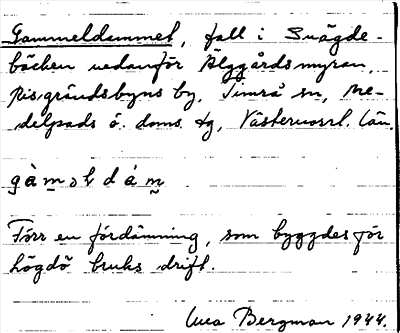 Gammeldammet, fall i Snägde-
bäcken nedanför Älggårdsmyran,
Risgrändsbyns by, Timrå sn, Me-
delpads ö. doms. tg, Västernorrl. län.
gàmǝldám
Förr en fördämning, som byggdes för
Lögdö bruks drift.
Bergman 1944.